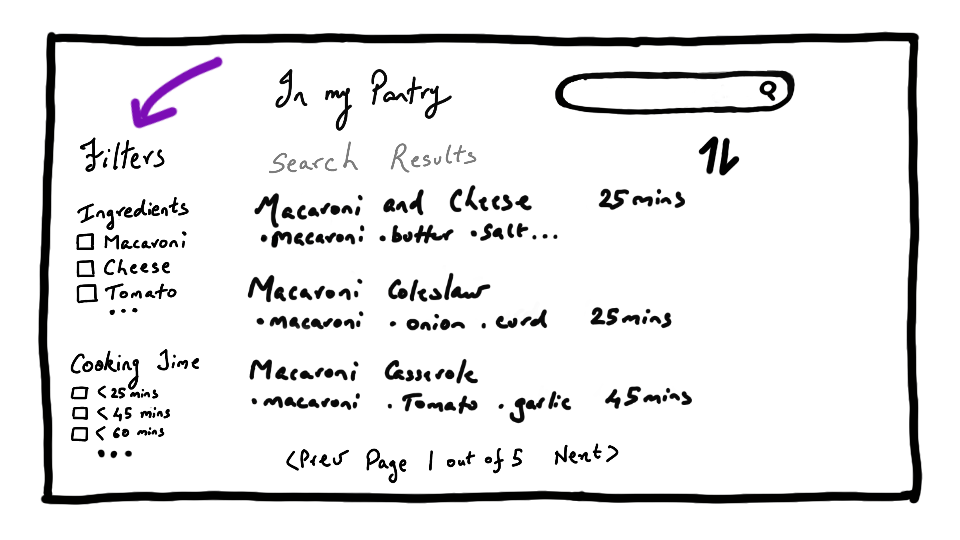 In my Pantry
Filters
Ingredients
Macaroni
Cheese
Tomato
...
Cooking Time
< 25 mins
< 45 mins
< 60 mins
...
Search Results
Macaroni and Cheese 25 mins
• macaroni • butter • salt...
Macaroni Coleslaw
• macaroni • onion • curd 25 mins
Macaroni Casserole
• macaroni • Tomato • garlic 45 mins
<Prev Page 1 out of 5 Next>